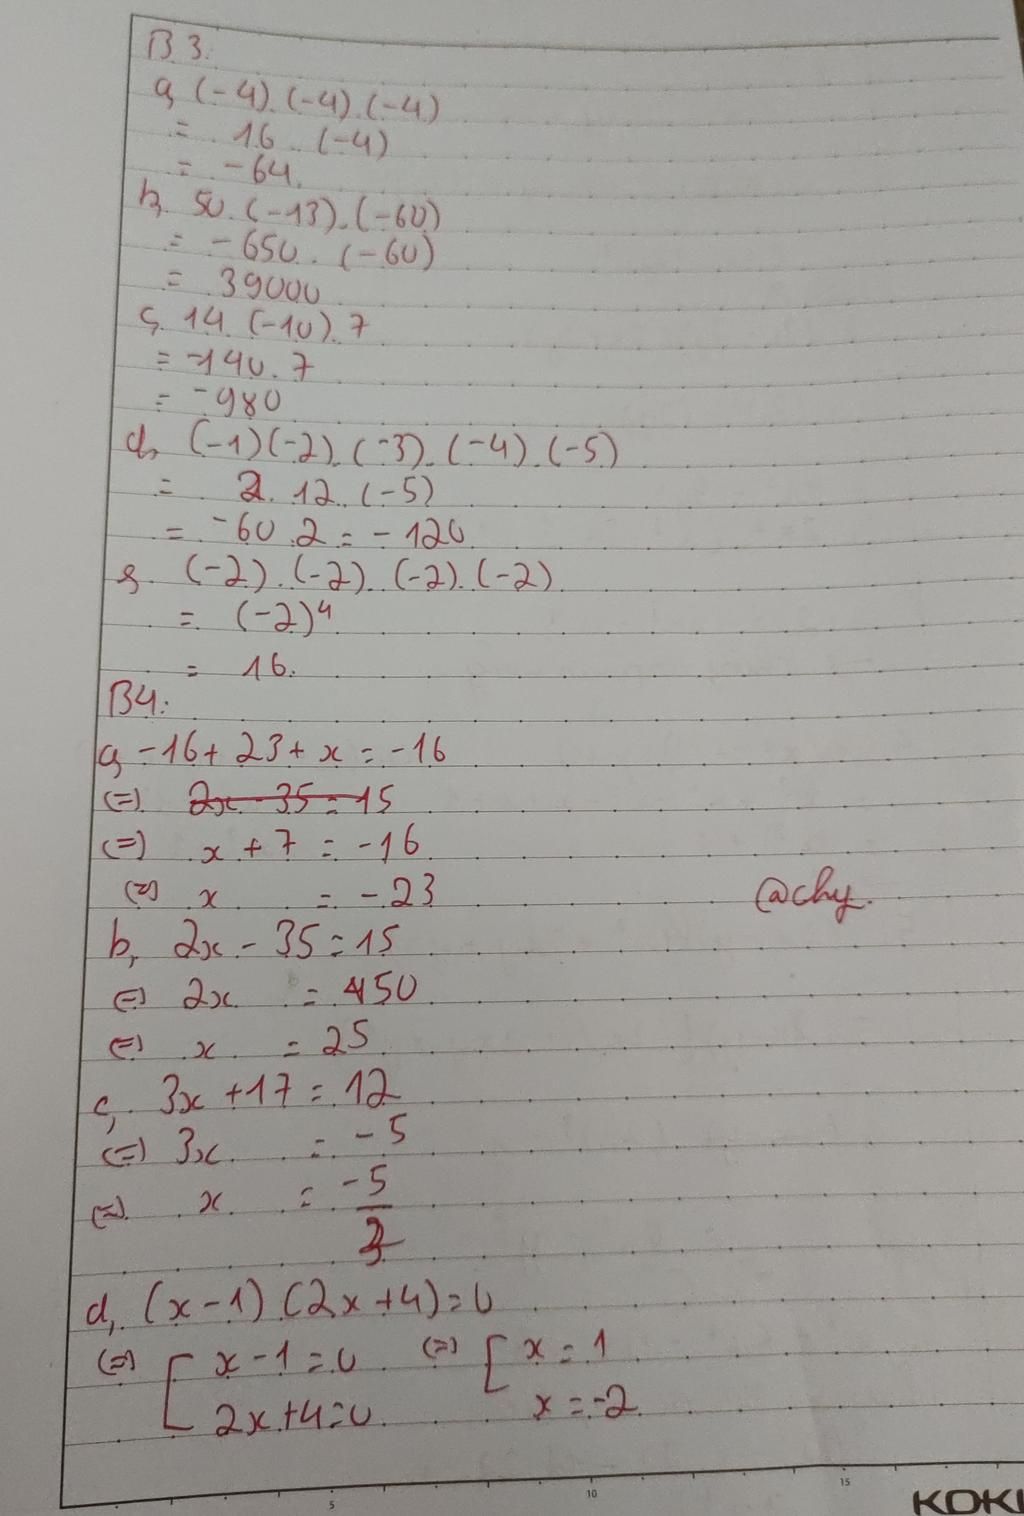 B3.
a, (-4).(-4).(-4)
= 16.(-4)
= -64.
b, 50.(-13).(-60)
= -650.(-60)
= 39000
c, 14.(-10).7
= -140.7
= -980
d, (-1)(-2).(-3).(-4).(-5)
= 2.12.(-5)
= -60.2 = -120
(-2).(-2).(-2).(-2)
= (-2)⁴
= 16.
B4:
a, -16+23+x=-16
(=) 2x-35=15
(=) x+7=-16
(=) x = -23
@chy.
b, 2x-35=15
(=) 2x = 50
(=) x = 25
c, 3x+17=12
(=) 3x = -5
(=) x = -5/3
d, (x-1)(2x+4)=0
(=) [ x-1=0 (=) [ x=1
2x+4=0 x=-2
5 10 15
KOKU